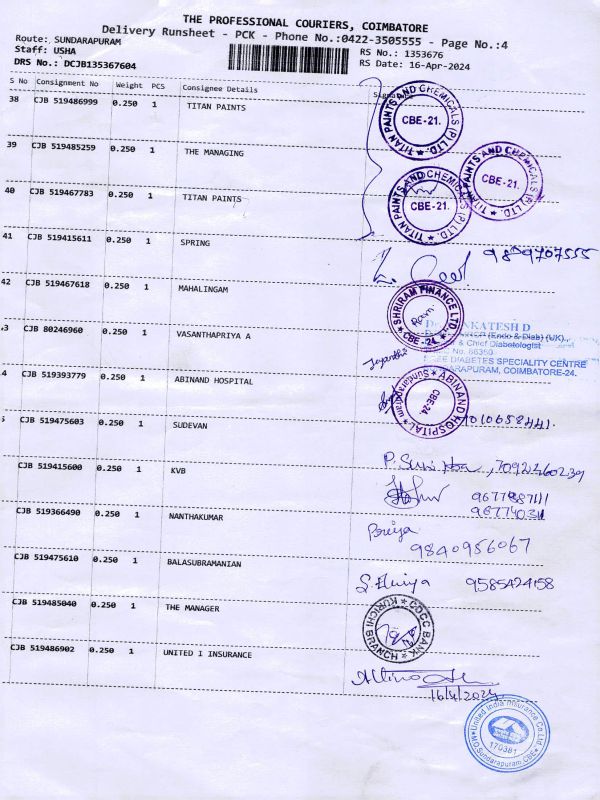 THE PROFESSIONAL COURIERS, COIMBATORE
Delivery Runsheet - PCK - Phone No.:0422-3505555 - Page No.:4
Route: SUNDARAPURAM
Staff: USHA
RS No.: 1353676
DRS No.: DCJB135367604
RS Date: 16-Apr-2024
S No Consignment No Weight PCS Consignee Details
38 CJB 519486999 0.250 1 TITAN PAINTS
TITAN PAINTS AND CHEMICALS (P) LTD. CBE-21.
39 CJB 519485259 0.250 1 THE MANAGING
TITAN PAINTS AND CHEMICALS (P) LTD. CBE-21.
40 CJB 519467783 0.250 1 TITAN PAINTS
TITAN PAINTS AND CHEMICALS (P) LTD. CBE-21.
41 CJB 519415611 0.250 1 SPRING
42 CJB 519467618 0.250 1 MAHALINGAM
SHRIRAM FINANCE LTD. CBE-24
Ram
CJB 80246960 0.250 1 VASANTHAPRIYA A
Jayanthi
ENKATESH D
(Endo & Diab) (UK).,
& Chief Diabetologist
No. 66350
EE DIABETES SPECIALITY CENTRE
ARAPURAM, COIMBATORE-24.
CJB 519393779 0.250 1 ABINAND HOSPITAL
ABINAND HOSPITAL Sundarapuram CBE-24
CJB 519475603 0.250 1 SUDEVAN
CJB 519415600 0.250 1 KVB
9677887111
CJB 519366490 0.250 1 NANTHAKUMAR
Poniya
9840956067
CJB 519475610 0.250 1 BALASUBRAMANIAN
9585424158
CJB 519485040 0.250 1 THE MANAGER
CDCC BANK KURICHI BRANCH
CJB 519486902 0.250 1 UNITED I INSURANCE
16/4/2024
United India Insurance Co Ltd M.O Sundarapuram, CBE 170381